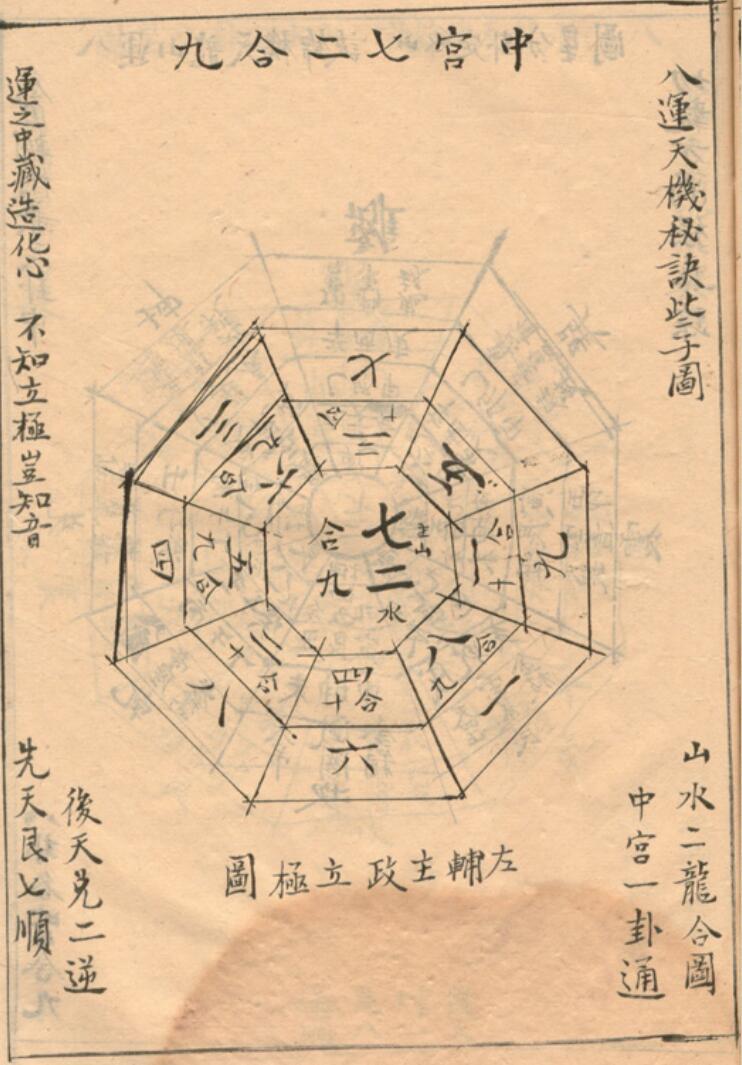 中宮七二合九
八運天機秘訣些子圖
運之中藏造化心 不知立極豈知音
七
三合十
五
九
一合十
一
八合九
六
四合十
八
二合十
四
五合九
三
六合九
七主山
二水
合九
左輔主政立極圖
山水二龍合圖
中宮一卦通
後天兌二逆
先天艮七順